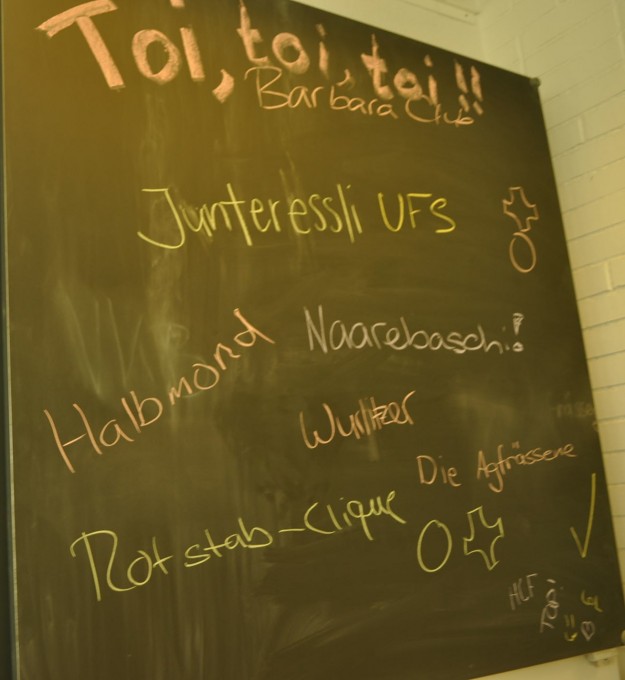 Toi, toi, toi!!
Barbara Club
Junteressli UFS
Naarebaschi!
Halbmond
Wurlitzer
Die Agfrässene
Rotstab-Clique
HCF